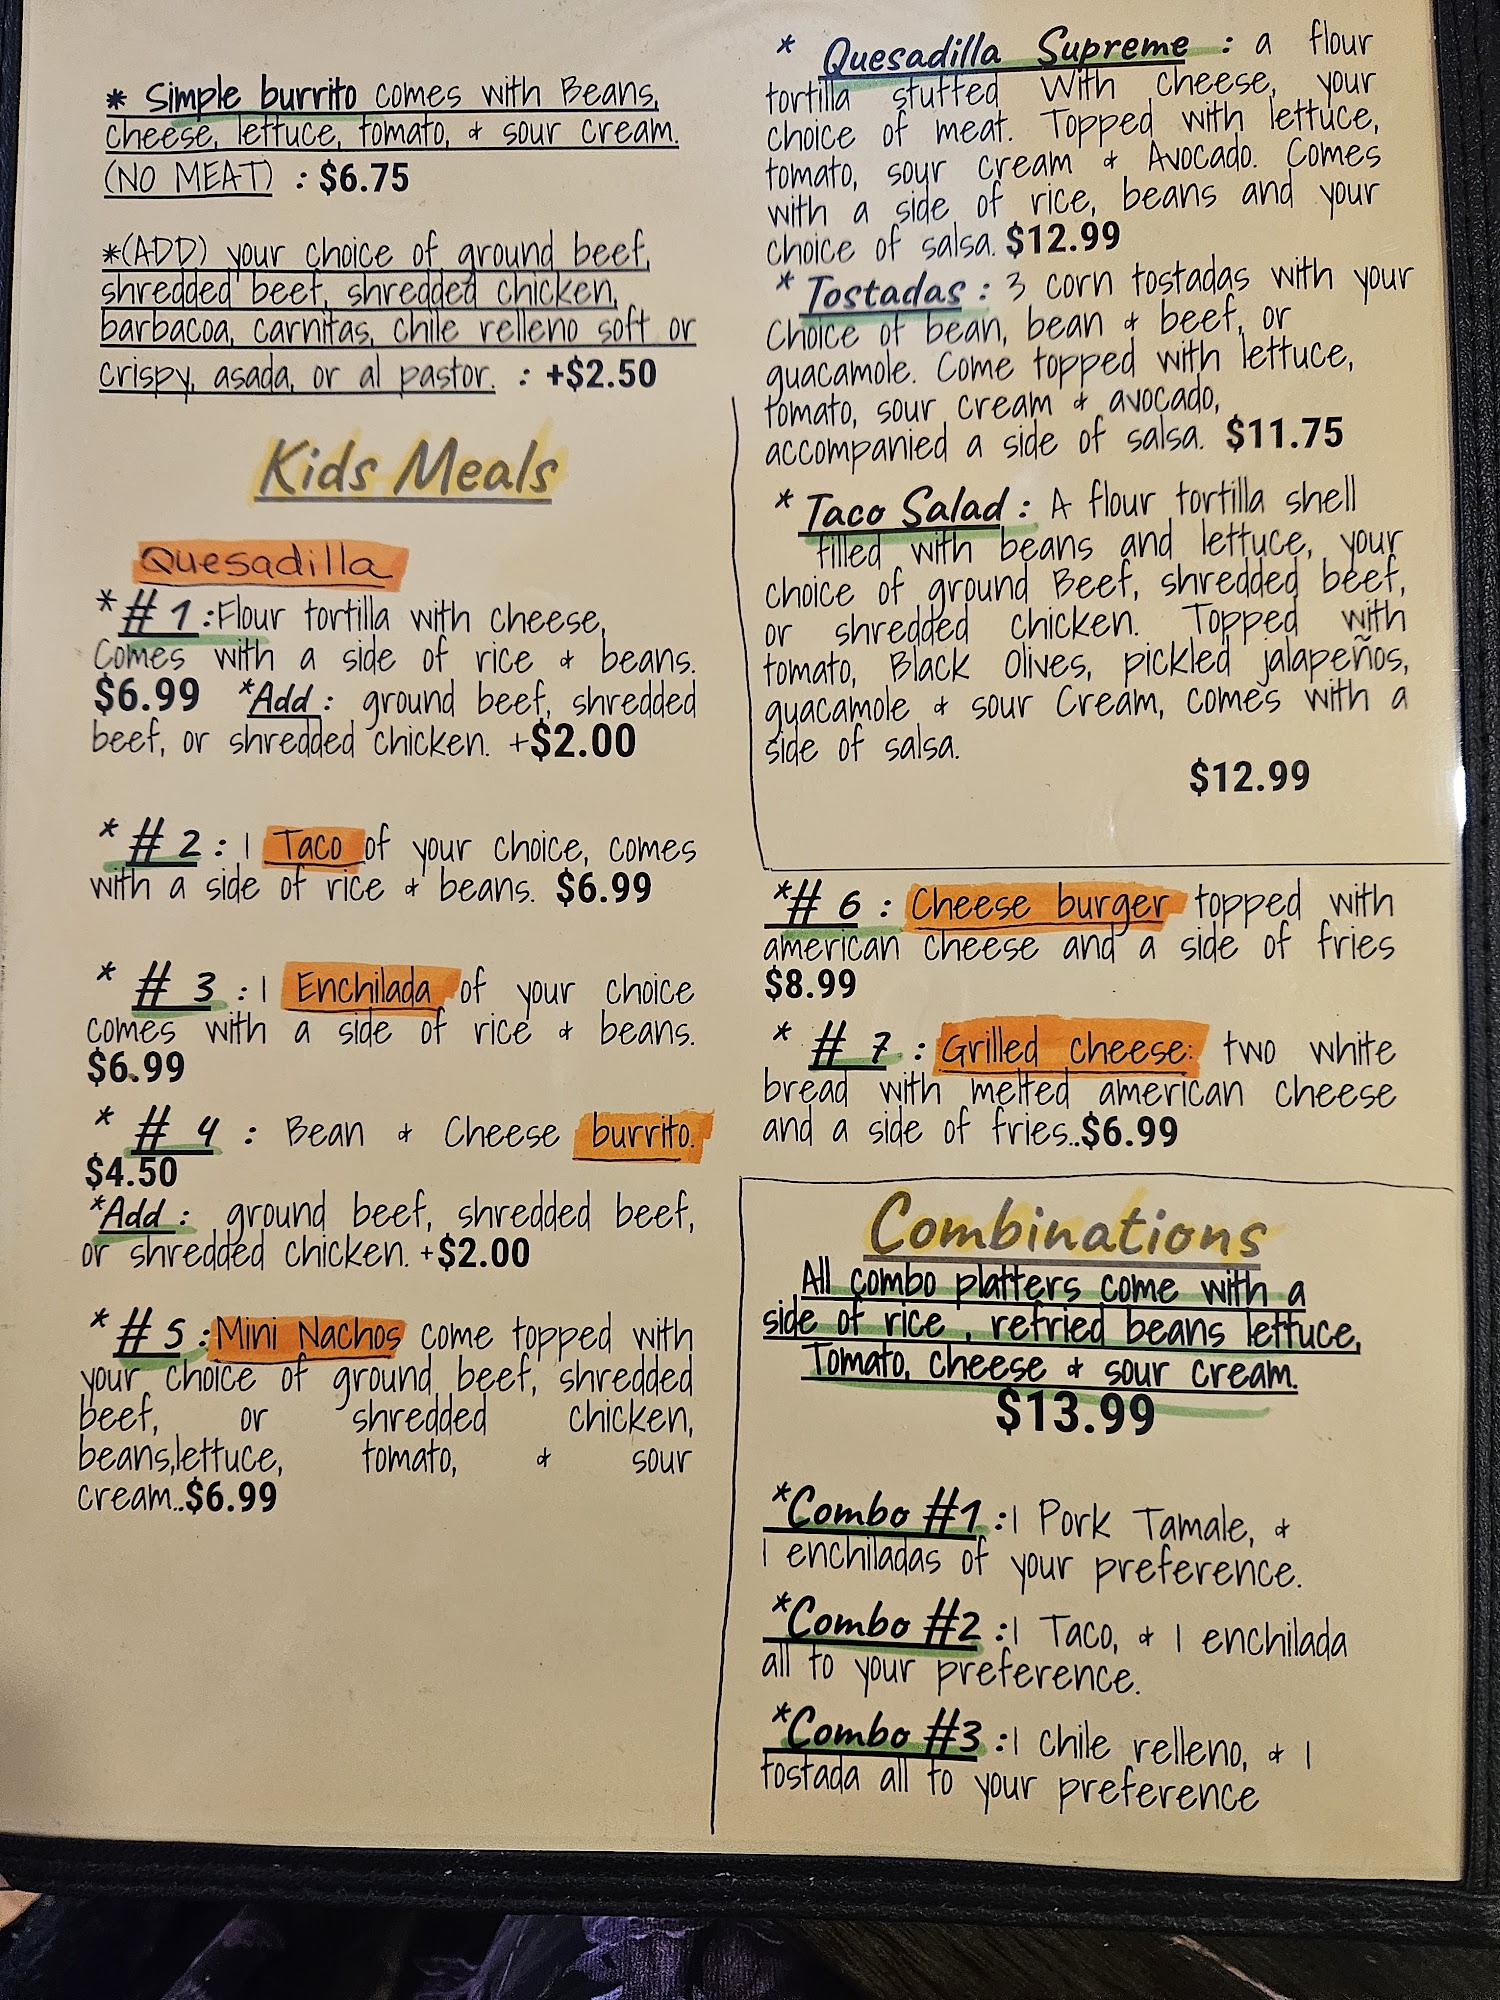 * Simple burrito comes with Beans,
cheese, lettuce, tomato, & sour cream.
(NO MEAT) : $6.75
*(ADD) your choice of ground beef,
shredded beef, shredded chicken,
barbacoa, carnitas, chile relleno soft or
crispy, asada, or al pastor. : +$2.50
Kids Meals
Quesadilla
*# 1 :Flour tortilla with cheese,
Comes with a side of rice & beans.
$6.99 *Add : ground beef, shredded
beef, or shredded chicken. +$2.00
* # 2 : 1 Taco of your choice, comes
with a side of rice & beans. $6.99
* # 3 : 1 Enchilada of your choice
comes with a side of rice & beans.
$6.99
* # 4 : Bean & Cheese burrito.
$4.50
*Add : ground beef, shredded beef,
or shredded chicken. +$2.00
* # 5 :Mini Nachos come topped with
your choice of ground beef, shredded
beef, or shredded chicken,
beans,lettuce, tomato, & sour
cream..$6.99
* Quesadilla Supreme : a flour
tortilla stuffed With cheese, your
choice of meat. Topped with lettuce,
tomato, sour cream & Avocado. Comes
with a side of rice, beans and your
choice of salsa. $12.99
* Tostadas : 3 corn tostadas with your
Choice of bean, bean & beef, or
guacamole. Come topped with lettuce,
tomato, sour cream & avocado,
accompanied a side of salsa. $11.75
* Taco Salad : A flour tortilla shell
filled with beans and lettuce, your
choice of ground Beef, shredded beef,
or shredded chicken. Topped with
tomato, Black Olives, pickled jalapeños,
guacamole & sour Cream, comes with a
side of salsa.
$12.99
*# 6 : Cheese burger topped with
american cheese and a side of fries
$8.99
* # 7 : Grilled cheese: two white
bread with melted american cheese
and a side of fries..$6.99
Combinations
All combo platters come with a
side of rice , refried beans lettuce,
Tomato, cheese & sour cream.
$13.99
*Combo #1 :1 Pork Tamale, &
1 enchiladas of your preference.
*Combo #2 :1 Taco, & 1 enchilada
all to your preference.
*Combo #3 :1 Chile relleno, & 1
tostada all to your preference